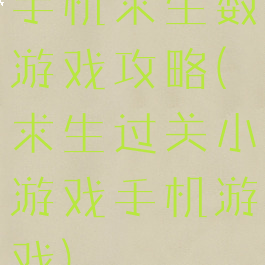 手机求生数
游戏攻略(
求生过关小
游戏手机游
戏)